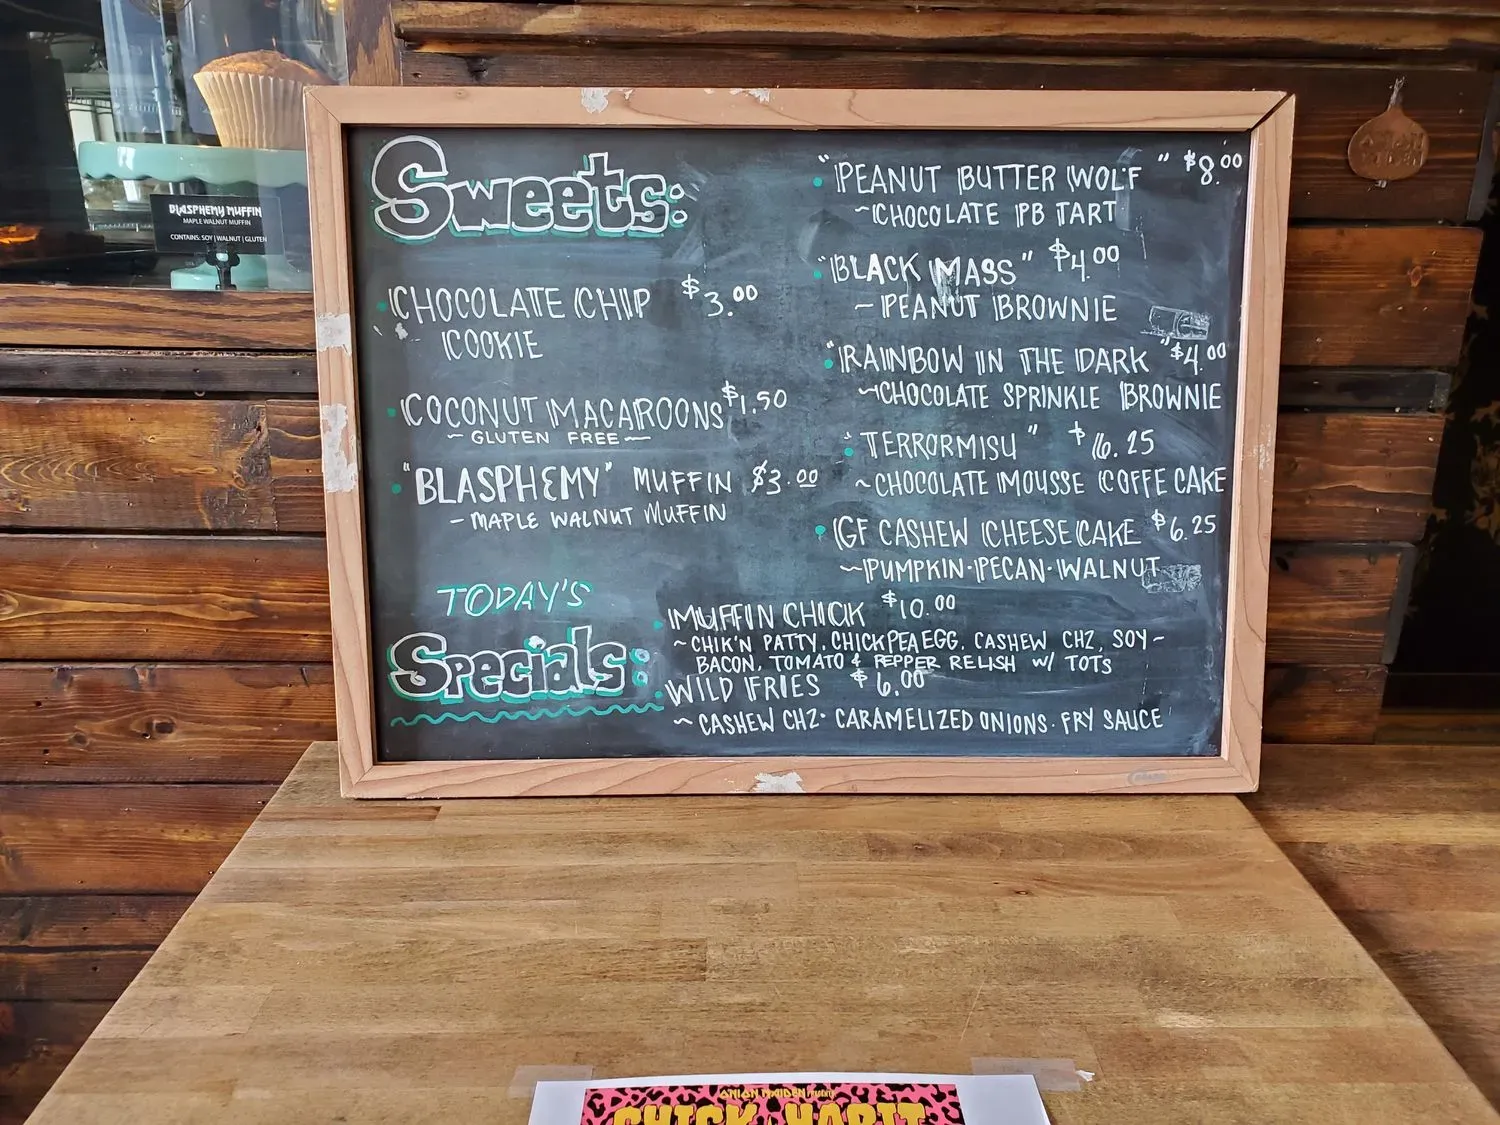 BLASPHEMY MUFFIN
MAPLE WALNUT MUFFIN
CONTAINS: SOY | WALNUT | GLUTEN
Sweets:
CHOCOLATE CHIP $3.00
COOKIE
COCONUT MACAROONS $1.50
~ GLUTEN FREE ~
"BLASPHEMY" MUFFIN $3.00
- MAPLE WALNUT MUFFIN
"PEANUT BUTTER WOLF" $8.00
~CHOCOLATE PB TART
"BLACK MASS" $4.00
~ PEANUT BROWNIE
"RAINBOW IN THE DARK" $4.00
~CHOCOLATE SPRINKLE BROWNIE
"TERRORMISU" $6.25
~CHOCOLATE MOUSSE COFFE CAKE
GF CASHEW CHEESECAKE $6.25
~PUMPKIN·PECAN·WALNUT
TODAY'S
Specials:
MUFFIN CHICK $10.00
~CHIK'N PATTY, CHICKPEA EGG, CASHEW CHZ, SOY~
BACON, TOMATO & PEPPER RELISH W/ TOTS
WILD FRIES $6.00
~ CASHEW CHZ· CARAMELIZED ONIONS· FRY SAUCE
ONION MAIDEN
CHICK HABIT